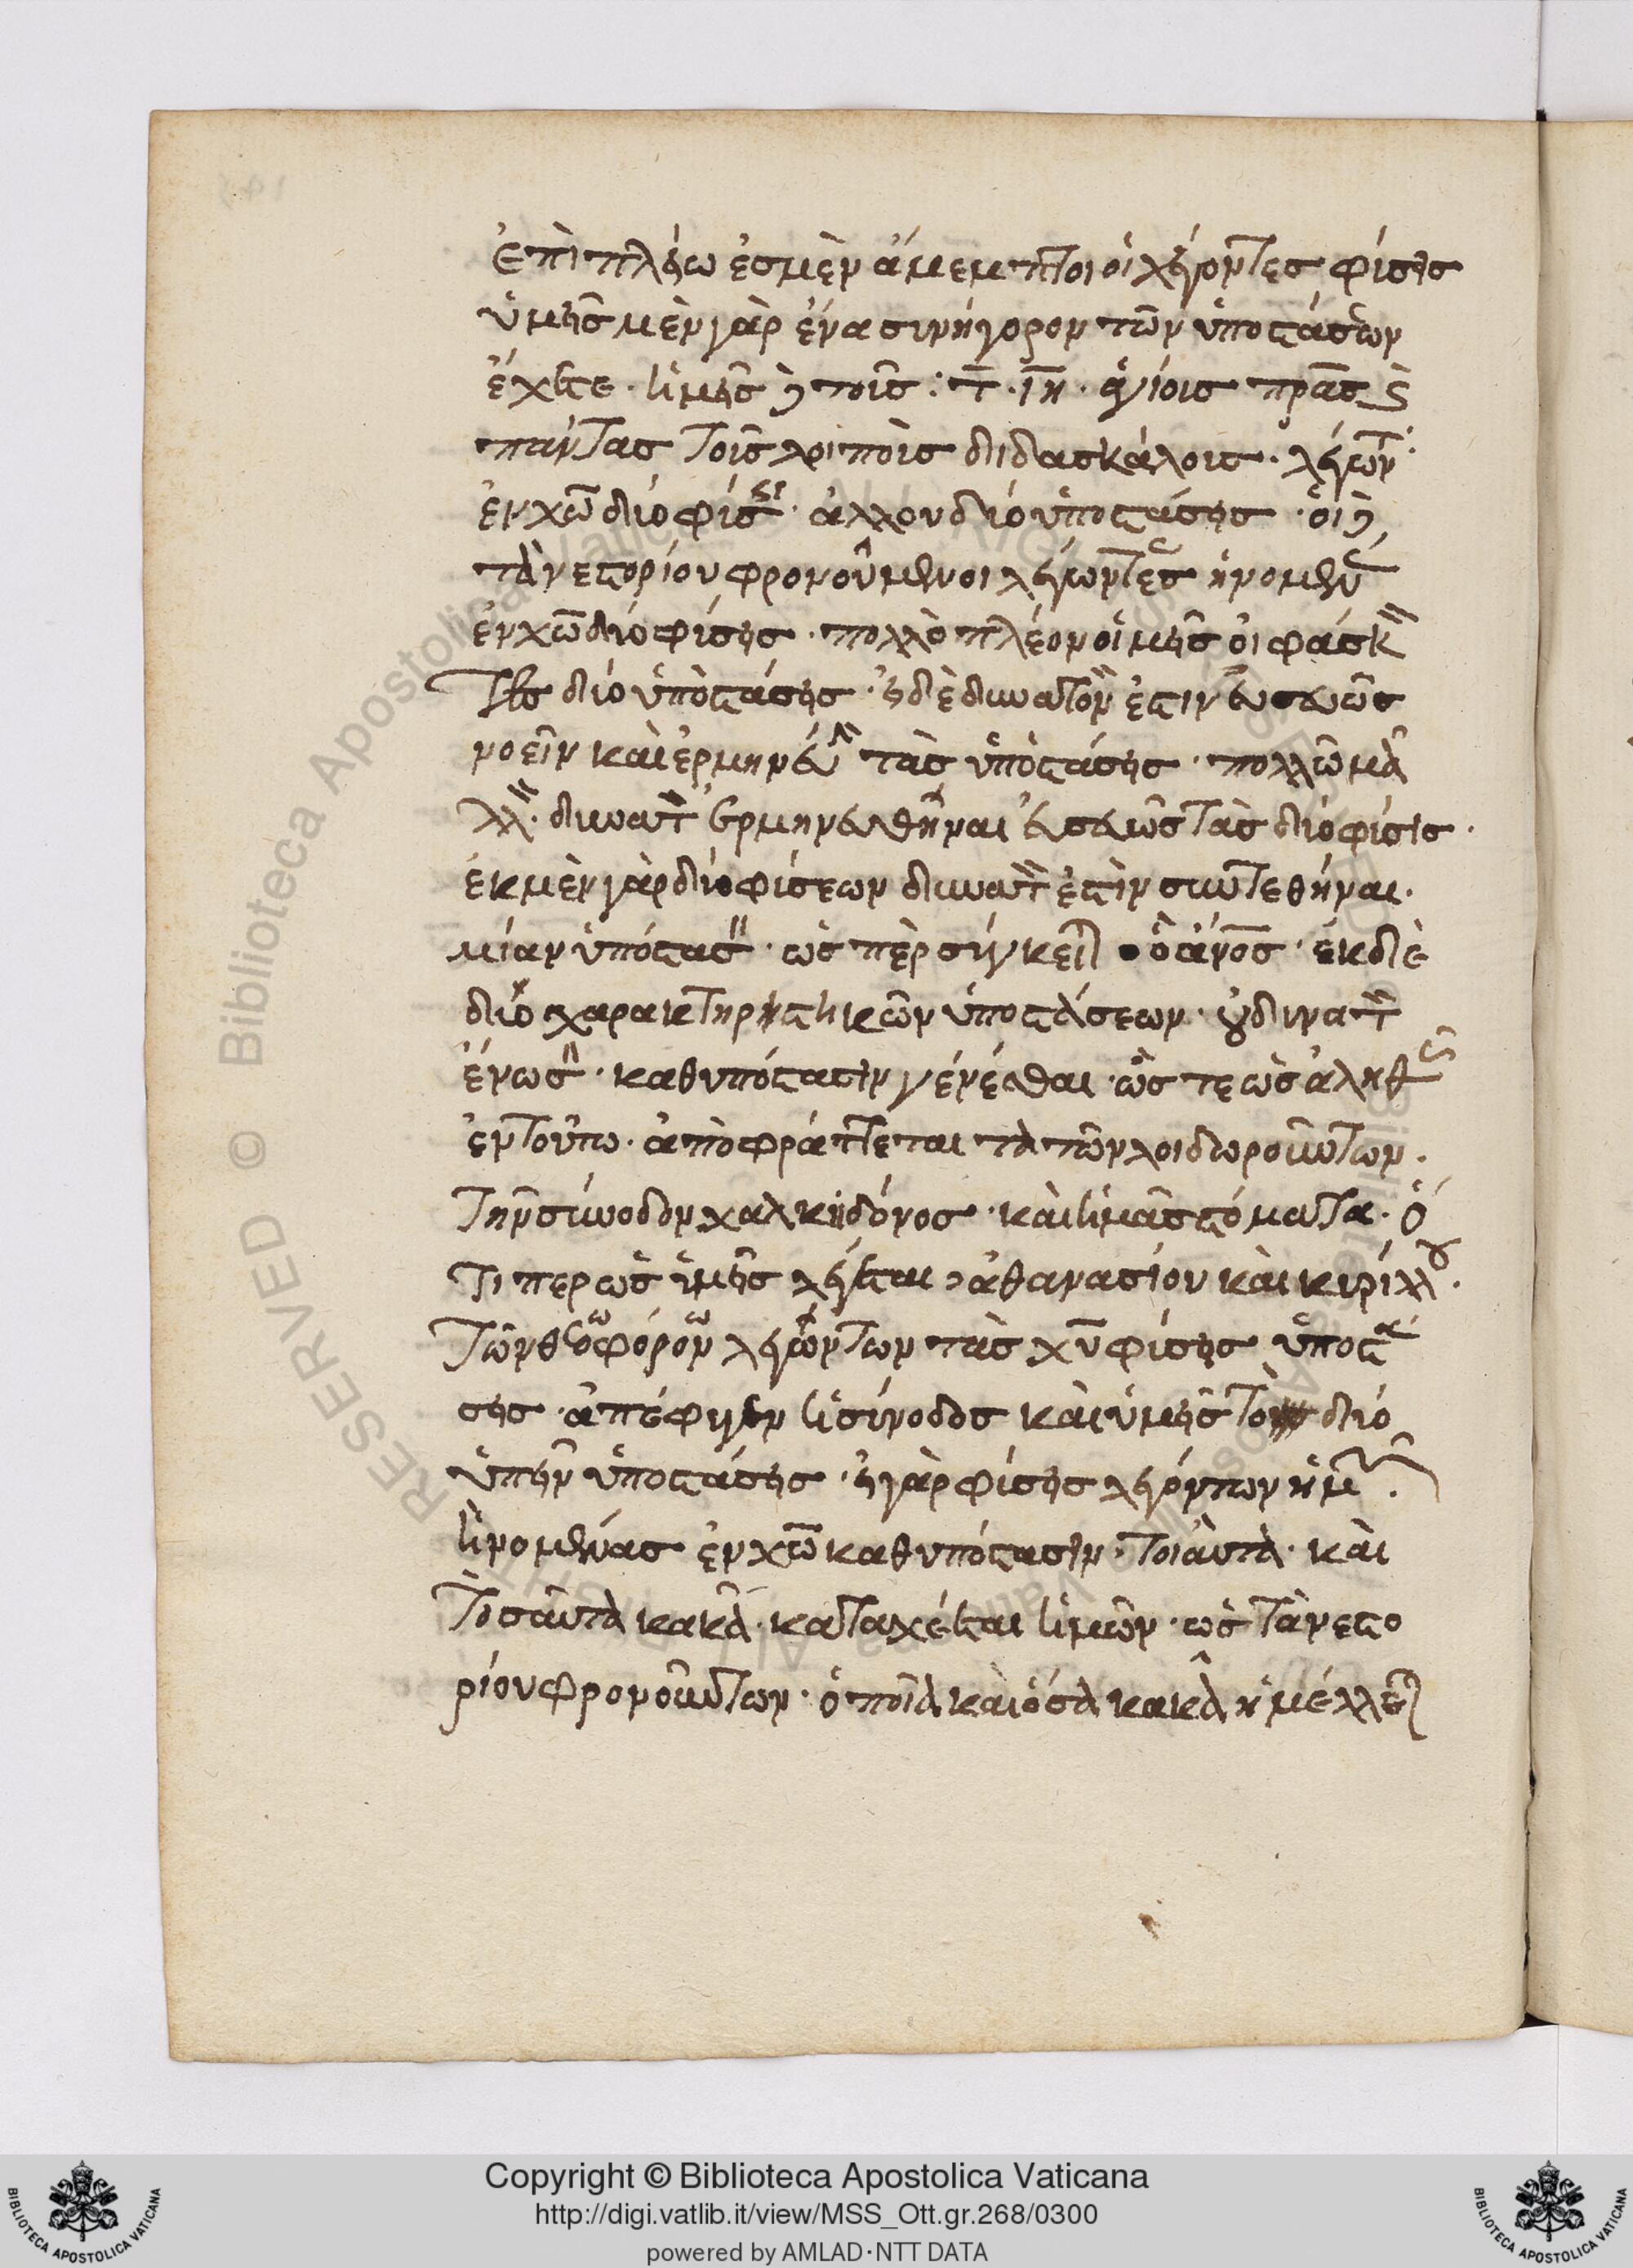 ἐπὶ πλείω ἐσμὲν ἄμεμπτοι οἱ λέγοντες φίσεις
ὑμεῖς μὲν γὰρ ἕνα σινήγορον τῶν ὑποστάσεων
ἔχετε · ἡμεῖς δὲ τοῖς : τ̅ · ι̅η̅ · ἁγίοις πρας κ
πάντας τοῖς λοιποὶς διδασκάλοις · λέγων
ἐν χω̅ δίο φίσει · ἀλλ' οὐ δίο ὑποστάσεις · οἱ δὲ
τὰ νεστορίου φρονοῦμενοι λέγωντες ἡνομέν
ἐν χω̅ δίο φίσεις · πολλὸ πλέον οἱμεῖς οἱ φάσκ
τες δίο ὑπὸστάσεις · εἰ δὲ δυνατὸν ἐστιν εὐσεβῶς
νοεῖν καὶ ἑρμηνεύειν τὰς ὑπὸστάσεις · πολλῶ μᾶ
λλον · δυνατὸν ἑρμηνευθῆναι εὐσεβῶς τὰς δίο φίσις ·
ἐκ μὲν γὰρ δίο φίσεων δυνατὸν ἐστὶν συντεθήναι ·
μίαν ὑπόστασιν · ὡς περ σύγκειται ὁ ἄνος · ἐκ δὲ
δίο χαρακτηρηστικῶν ὑποστάσεων · οὐ δινατὸν
ἕνωσιν · καθυπόστασιν γένέσθαι · ὥς τε ὡς ἀληθῶς
ἐν τούτω · ἀπὸφράττεται τὰ τῶν λοιδωρούντων ·
τὴν σύνοδον χαλκηδόνος · καὶ ἡμᾶς στόματα · ὅ
τι περ ὡς ἡμεῖς λέγεται ἀθανασίου καὶ κιρίλλου ·
τῶν θεοφόρον λεγώντων τὰς χυ̅ φίσεις ὑποστά
σεις · ἀπέφυγεν ἡ σίνοδος καὶ ὑμεῖς το δίο
ὑπεῖν ὑποστάσεις · εἰ γὰρ φίσεις λεγόντων ἡμῶν ·
ἡνομένας ἐν χω̅ καθυπόστασιν · τοιἀυτὰ · καὶ
τοσαῦτα κακὰ · καταχέεται ἡμῶν · ὡς τὰ νεστο
ρίου φρονούντων · ὁποῖα καὶ ὅσα κακὰ ἠμέλλετ
Copyright © Biblioteca Apostolica Vaticana
http://digi.vatlib.it/view/MSS_Ott.gr.268/0300
powered by AMLAD·NTT DATA